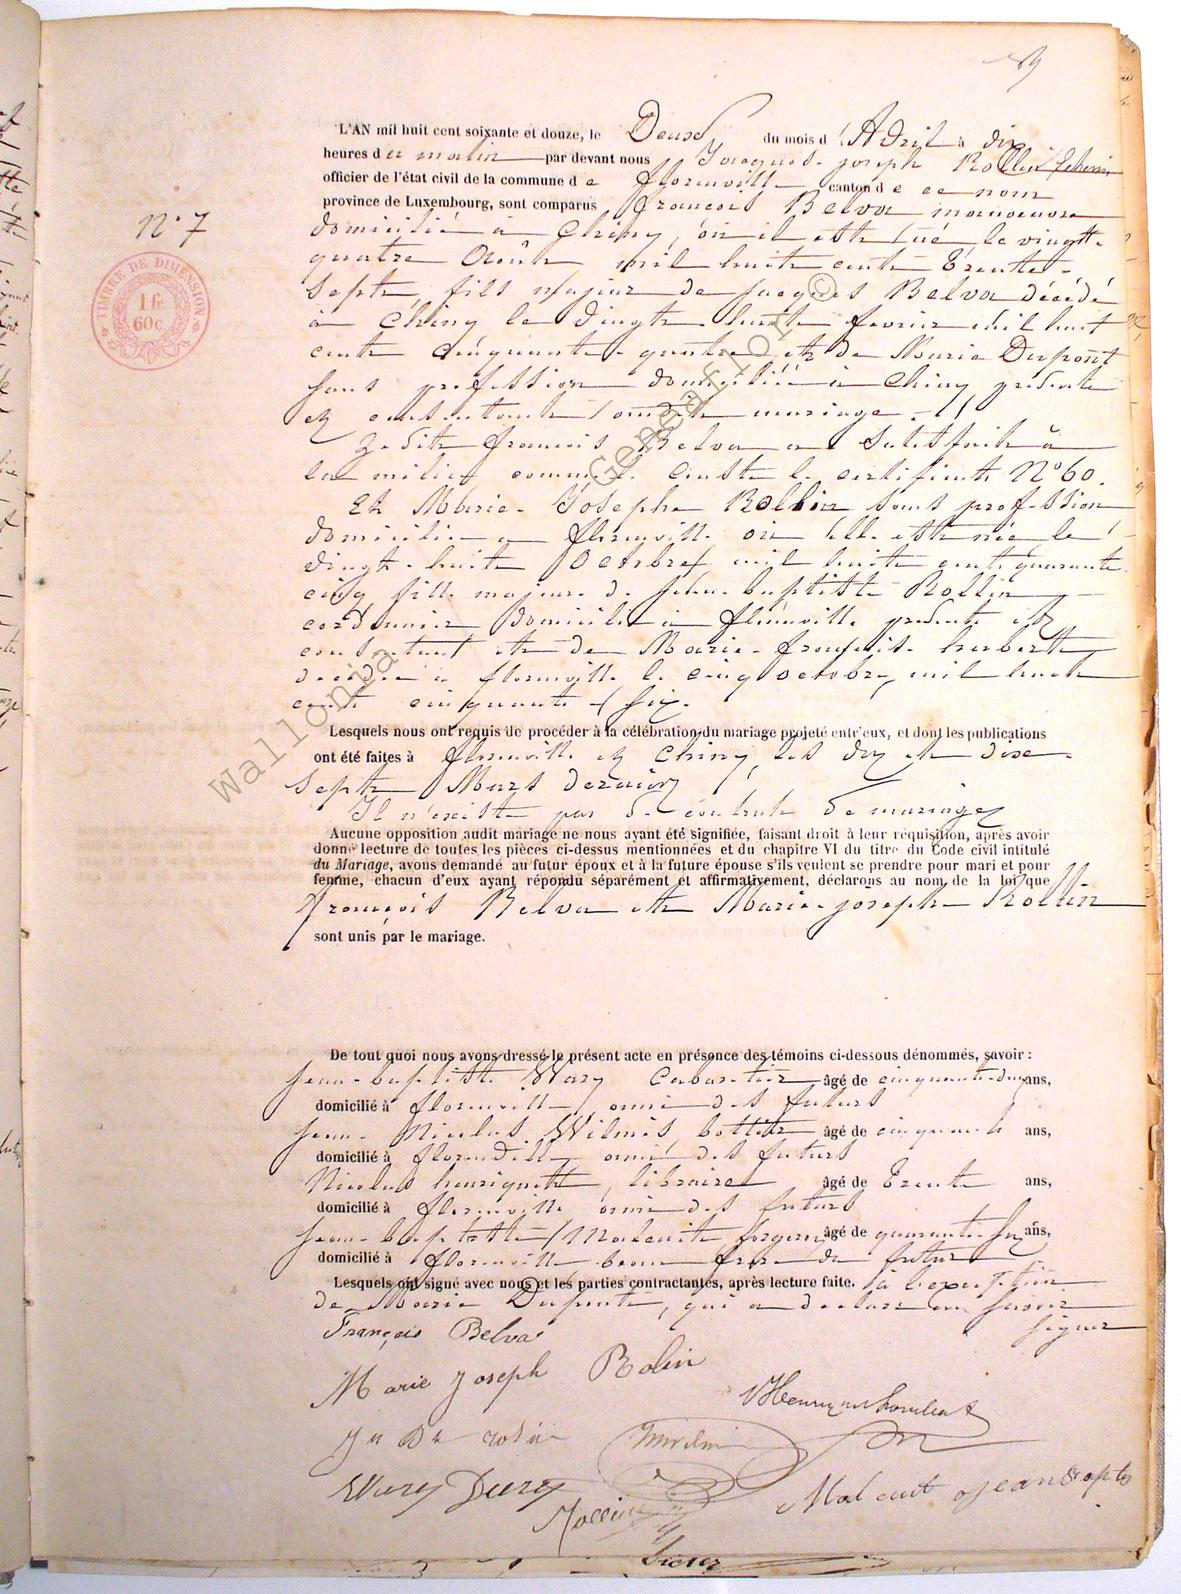 89
N° 7
TIMBRE DE DIMENSION
1 fr
60 c.
L'AN mil huit cent soixante et douze, le Deux du mois d'Avril à dix
heures du matin par devant nous Jacques-joseph Rollin
officier de l'état civil de la commune de florenville canton de ce nom
province de Luxembourg, sont comparus françois Belva manoeuvre
domicilié à Chiny, où il est né le vingt-
quatre Août mil huit cent trente-
sept, fils majeur de jacques Belva décédé
à Chiny le vingt-huit fevrier mil huit
cent cinquante-quatre et de Marie Dupont
sans profession domiciliée à Chiny présente
et consentante audit mariage.
Ledit françois Belva a satisfait à
la milice comme conste le certificat N° 60.
Et Marie-Josephe Rollin sans profession
domiciliée à florenville où elle est née le
vingt-huit Octobre mil huit cent quarante-
cinq fille majeure de jean-baptiste Rollin
cordonnier domicilié à florenville présent et
consentant et de Marie-françoise huberte
décédée à florenville le cinq octobre mil huit
cent cinquante-six.
Lesquels nous ont requis de procéder à la célébration du mariage projeté entr'eux, et dont les publications
ont été faites à florenville et Chiny, les dix et dix-
sept Mars dernier
Il n'existe pas de contrat de mariage
Aucune opposition audit mariage ne nous ayant été signifiée, faisant droit à leur réquisition, après avoir
donné lecture de toutes les pièces ci-dessus mentionnées et du chapitre VI du titre du Code civil intitulé
du Mariage, avons demandé au futur époux et à la future épouse s'ils veulent se prendre pour mari et pour
femme, chacun d'eux ayant répondu séparément et affirmativement, déclarons au nom de la loi que
françois Belva et Marie-joseph Rollin
sont unis par le mariage.
De tout quoi nous avons dressé le présent acte en présence des témoins ci-dessous dénommés, savoir :
jean-baptiste Wary Cabaretier âgé de cinquante-deux ans,
domicilié à florenville ami des futurs
jean-Nicolas Wilmis bottier âgé de cinquante ans,
domicilié à florenville ami des futurs
Nicolas henriquet, libraire âgé de trente ans,
domicilié à florenville ami des futurs
jean-baptiste Malcuit forgeron âgé de quarante-six ans,
domicilié à florenville beau frère du futur
Lesquels ont signé avec nous et les parties contractantes, après lecture faite. à l'exception
de Marie Dupont, qui a déclaré ne savoir
signer
François Belva
Marie Joseph Rolin
Wary
Rollin
Malcuit jean Bapte
Wallonia Geneaflor ©